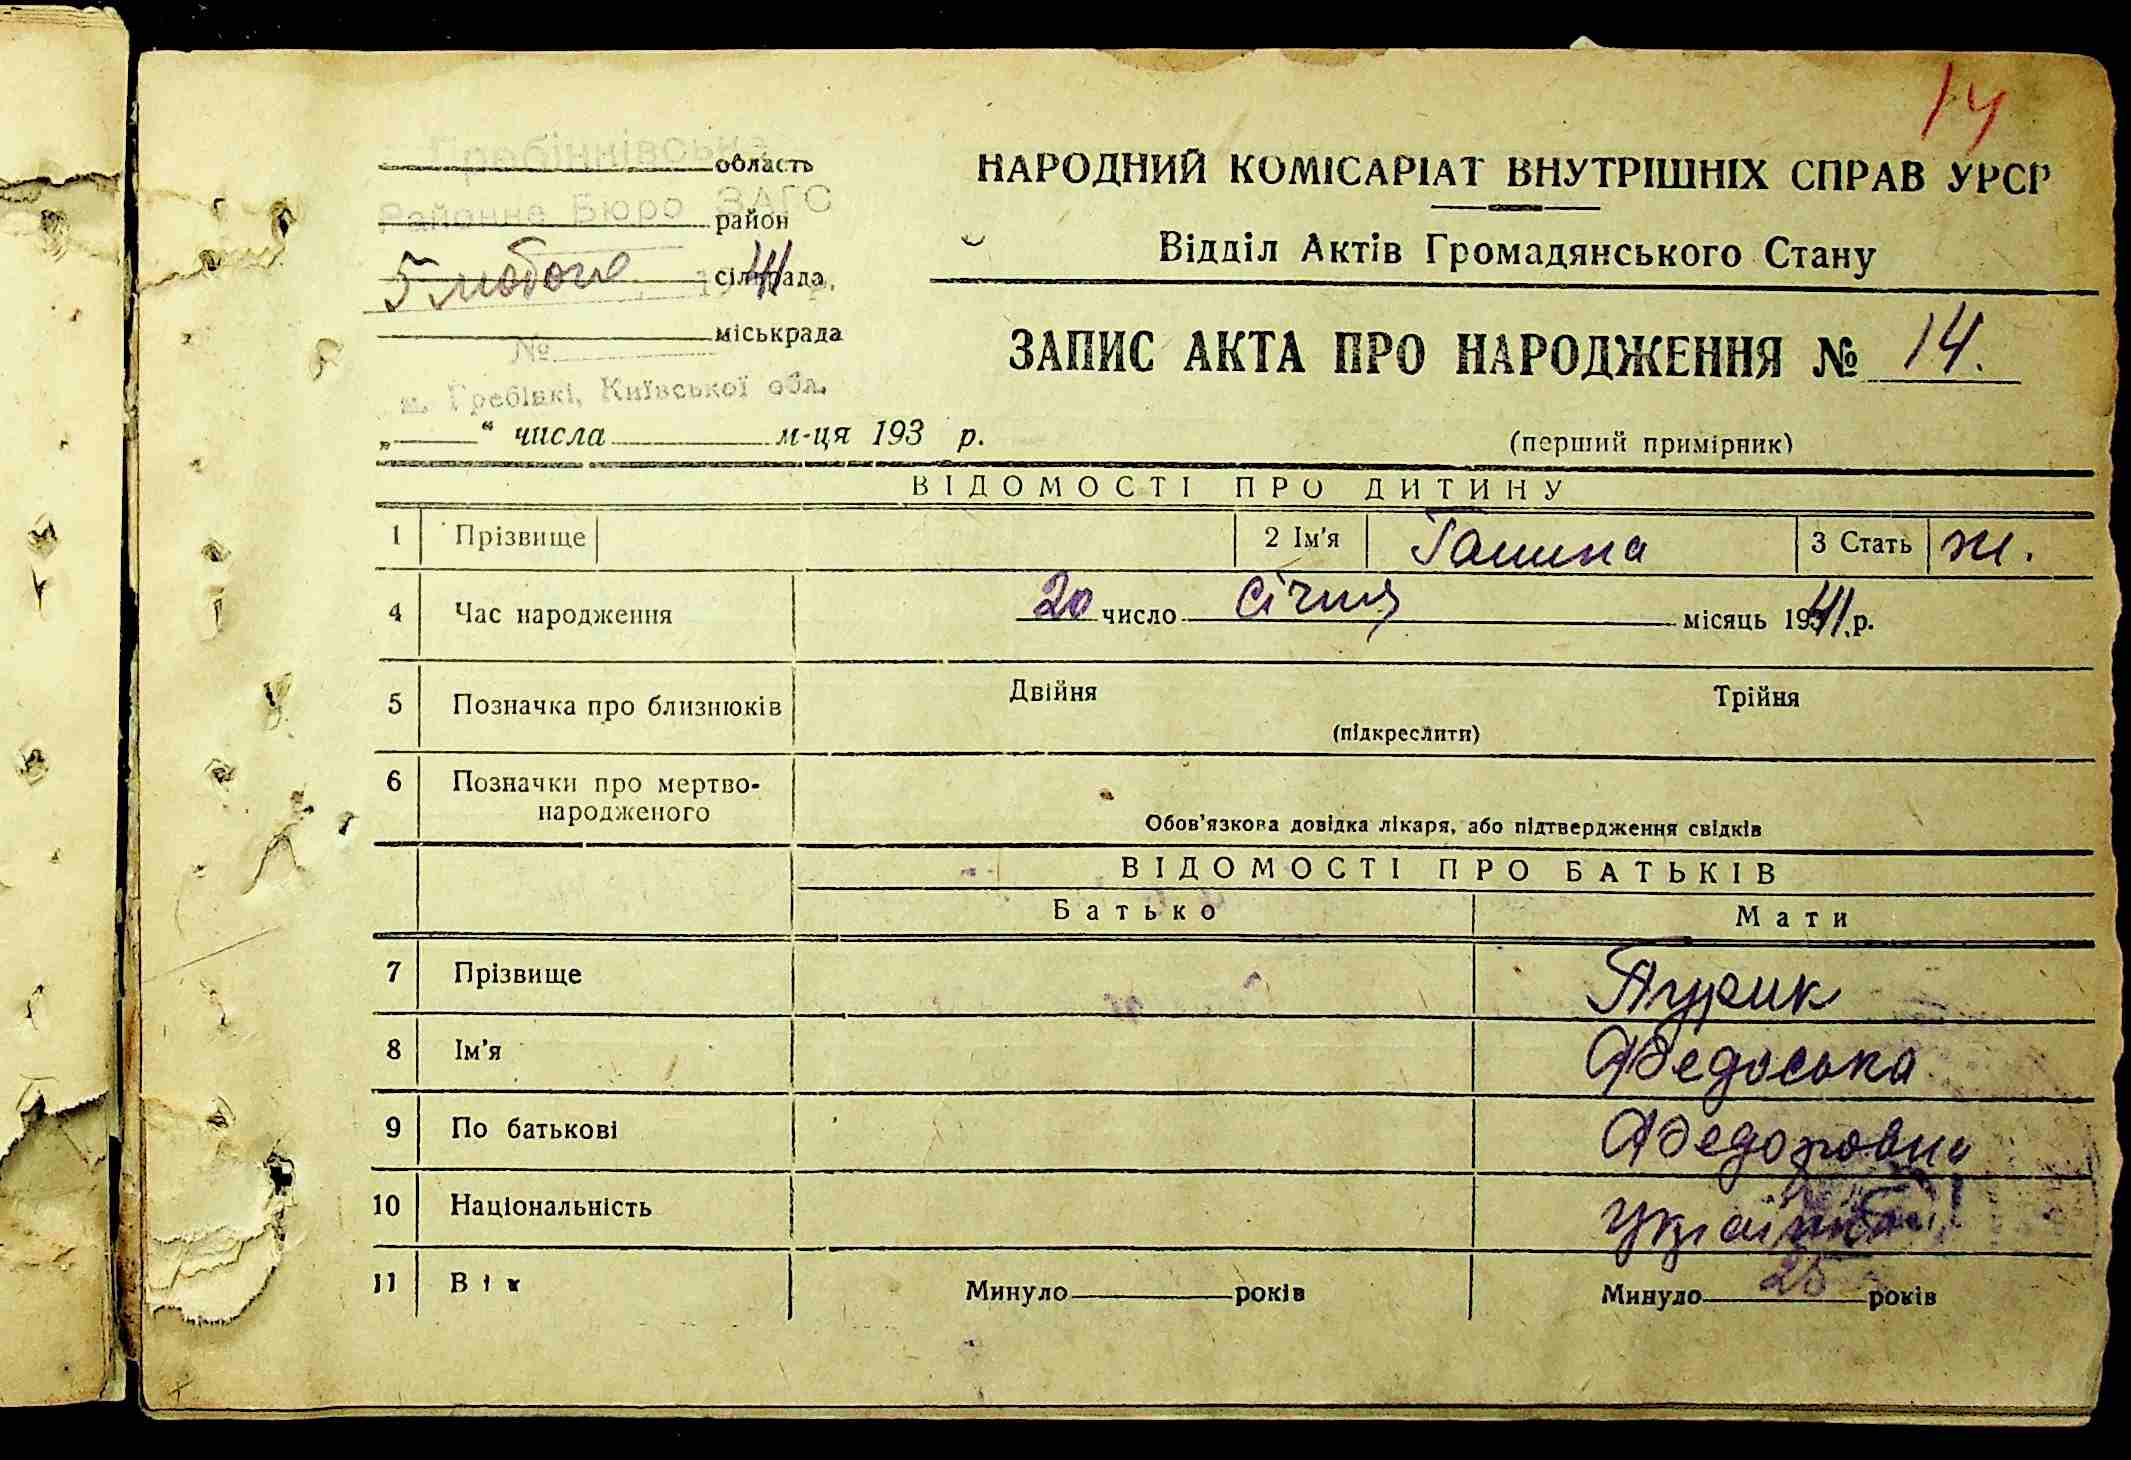 14
Гребінківське
область
Районне Бюро ЗАГС
район
5 лютого 1941 р.
сільрада
міськрада
№
м. Гребінкі, Київської обл.
„ “ числа м-ця 193 р.
НАРОДНИЙ КОМІСАРІАТ ВНУТРІШНІХ СПРАВ УРСР
Відділ Актів Громадянського Стану
ЗАПИС АКТА ПРО НАРОДЖЕННЯ № 14.
(перший примірник)
ВІДОМОСТІ ПРО ДИТИНУ
1 Прізвище 2 Ім'я Ганна 3 Стать ж.
4 Час народження 20 число Січня місяць 1941 р.
5 Позначка про близнюків Двійня Трійня
(підкреслити)
6 Позначки про мертво-
народженого
Обов'язкова довідка лікаря, або підтвердження свідків
ВІДОМОСТІ ПРО БАТЬКІВ
Батько Мати
7 Прізвище
8 Ім'я Федоська
9 По батькові Федоровна
10 Національність Українка
11 Вік Минуло років Минуло 25 років